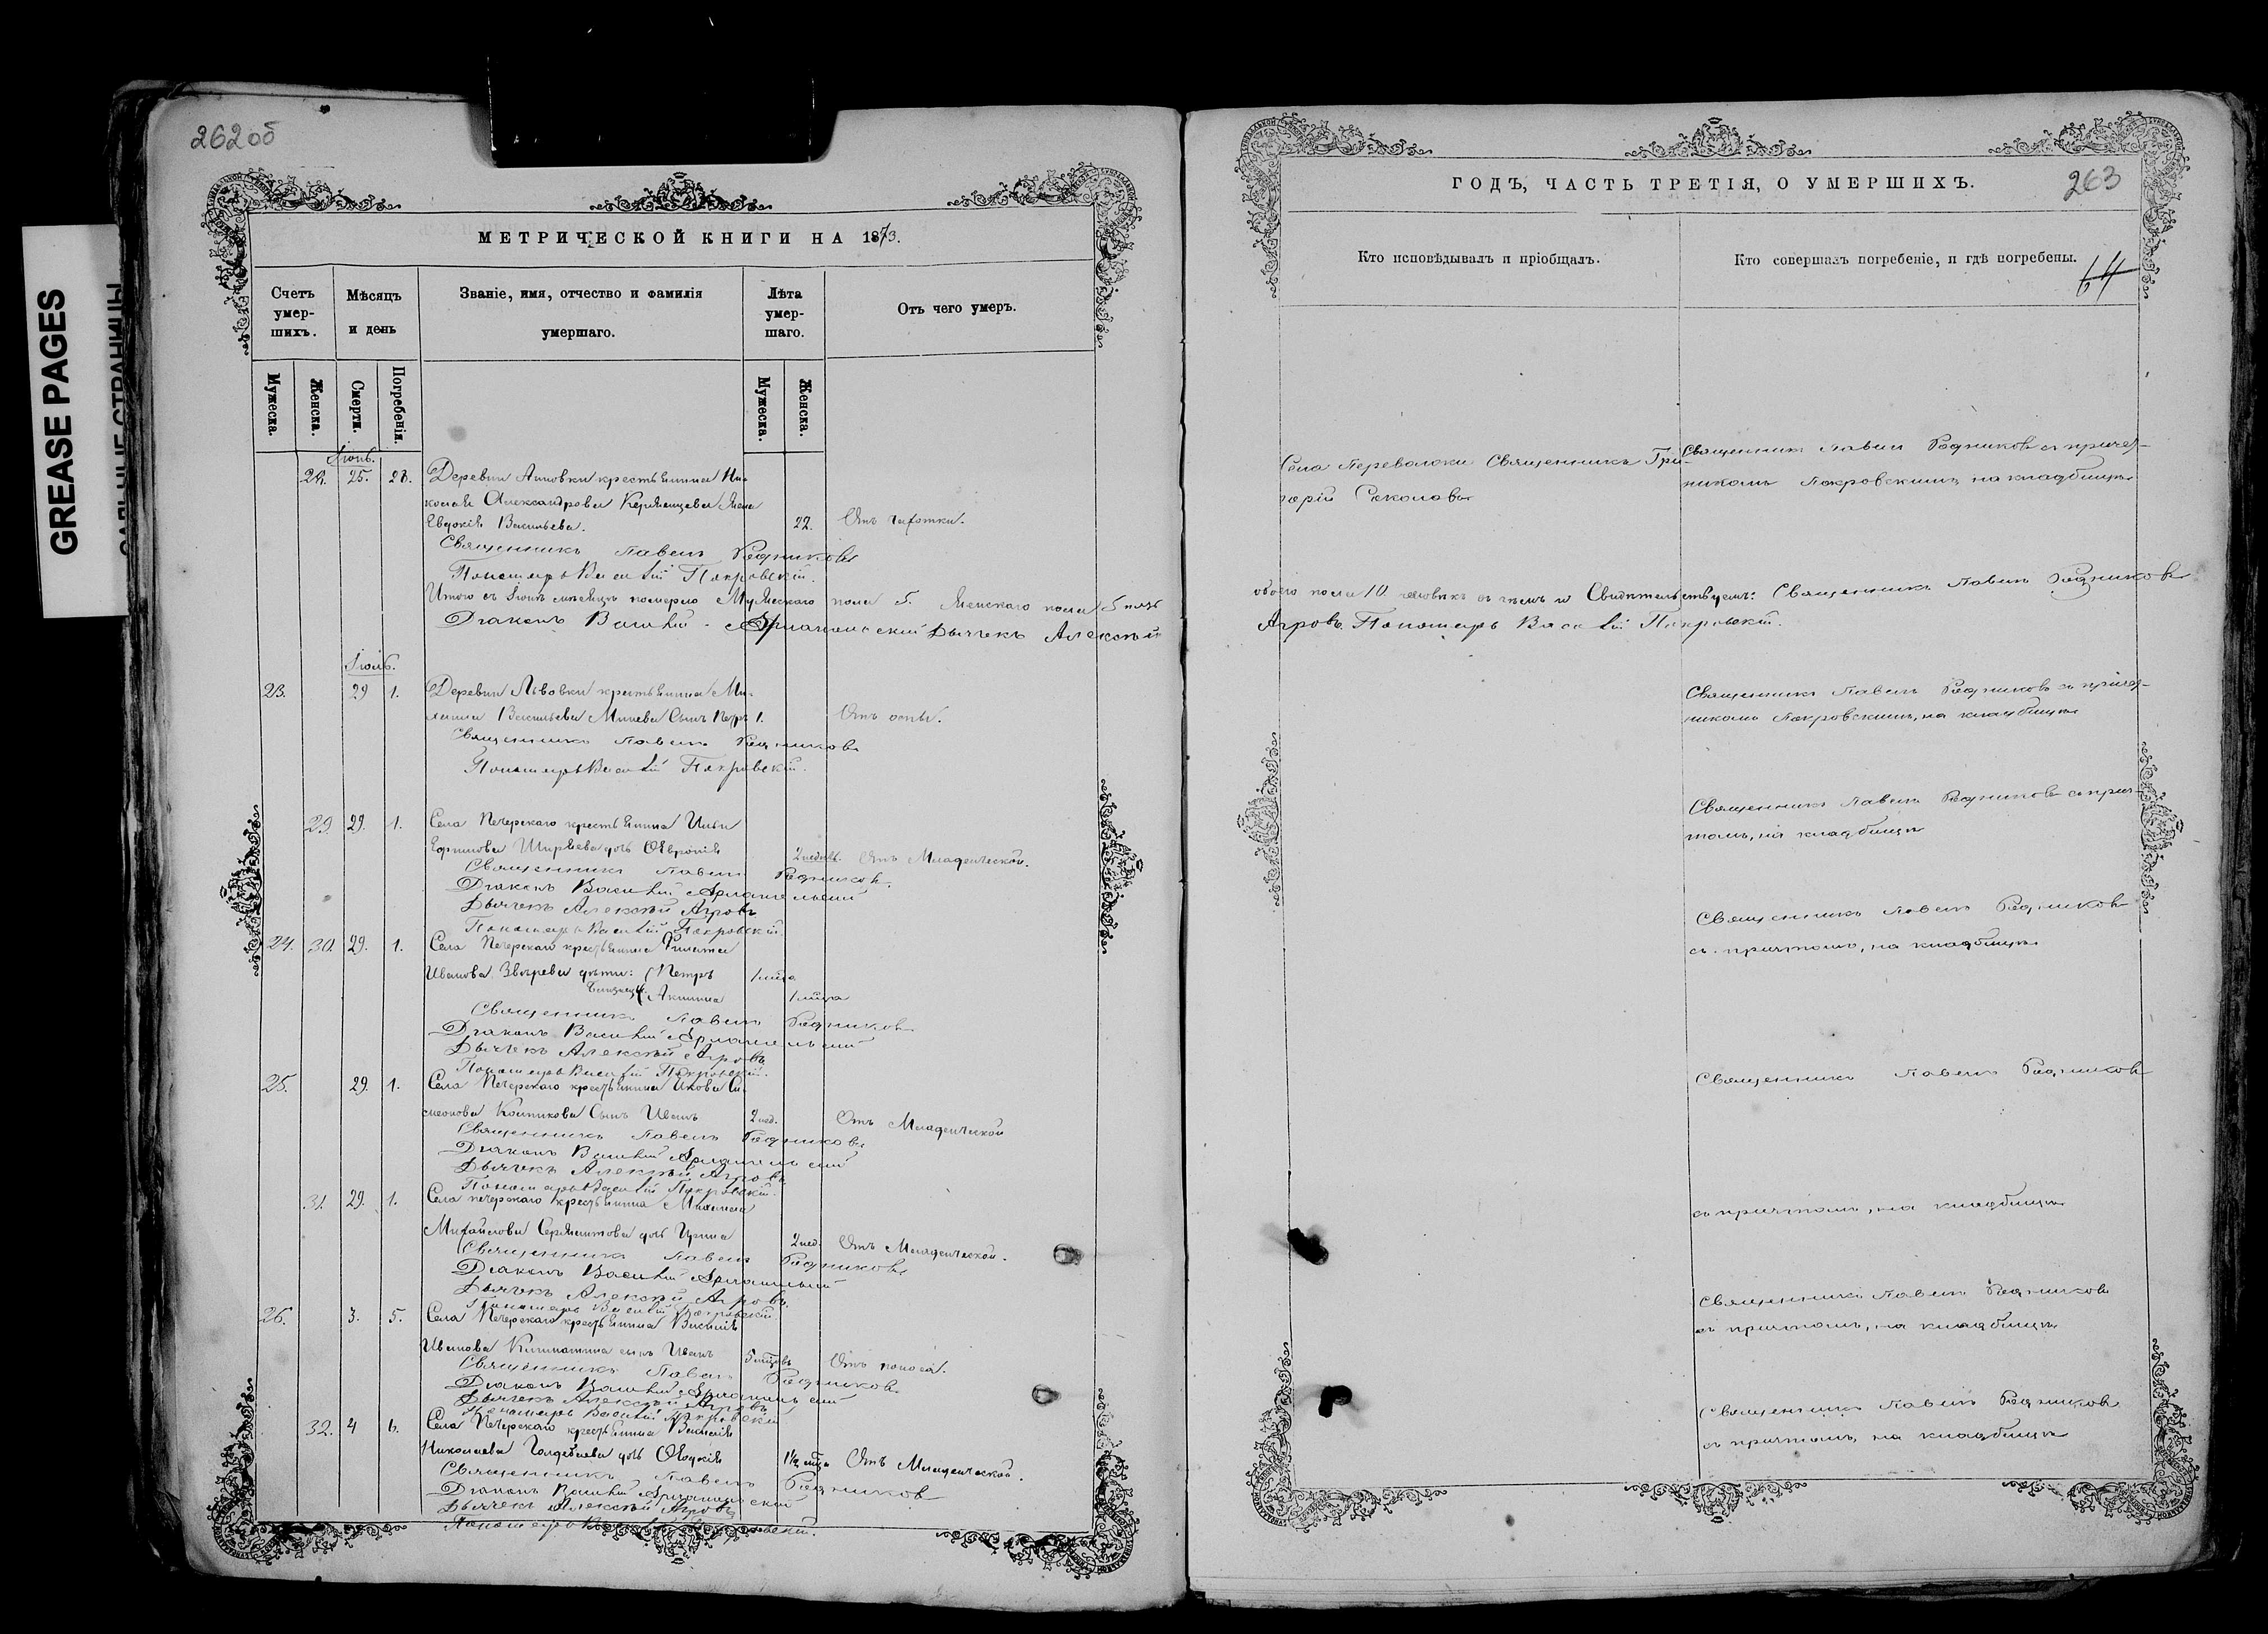 GREASE PAGES
262 об
МЕТРИЧЕСКОЙ КНИГИ НА 1873.
Счетъ умер-шихъ.
Мѣсяцъ и день
Званіе, имя, отчество и фамилія умершаго.
Лѣта умер-шаго.
Отъ чего умеръ.
Мужеска.
Женска.
Смерти.
Погребенія.
Мужеска.
Женска.
Іюнь.
28. 25. 28. Деревни крестьянина Ни-
колая Александрова жена
Евдокія Васильева. 22. Отъ чахотки.
Священникъ Павелъ Родниковъ
Пономарь Василій Покровскій.
Итого въ Іюнѣ мѣсяцѣ померло Мужескаго пола 5. Женскаго пола 5
Діаконъ Василій Дьячекъ Алексѣй
Іюль.
23. 29 1. Деревни Львовки крестьянина Ми-
Васильева Минеева сынъ Петръ 1. Отъ оспы.
Священникъ Павелъ Родниковъ
Пономарь Василій Покровскій.
29. 29. 1. Села Печерскаго крестьянина Ильи
Ширяева дочь 2 недѣль. Отъ Младенческой.
Священникъ Павелъ Родниковъ.
Діаконъ Василій
Дьячекъ Алексѣй Агровъ
Пономарь Василій Покровскій.
24. 30. 29. 1. Села Печерскаго крестьянина Филата
Иванова Звѣрева дѣти: Петръ 1 мѣца
Близнецы Акилина 1 мѣца
Священникъ Павелъ Родниковъ
Діаконъ Василій
Дьячекъ Алексѣй Агровъ
Пономарь Василій Покровскій.
25. 29. 1. Села Печерскаго крестьянина Якова Си-
меонова сынъ Иванъ 2 нед. Отъ Младенческой
Священникъ Павелъ Родниковъ
Діаконъ Василій
Дьячекъ Алексѣй Агровъ
Пономарь Василій Покровскій.
31. 29. 1. Села Печерскаго крестьянина Михаила
Михайлова дочь Ирина 2 нед. Отъ Младенческой.
Священникъ Павелъ Родниковъ
Діаконъ Василій
Дьячекъ Алексѣй Агровъ
Пономарь Василій Покровскій.
26. 3. 5. Села Печерскаго крестьянина Василія
Иванова сынъ Иванъ 5 мѣцовъ Отъ поноса.
Священникъ Павелъ Родниковъ
Діаконъ Василій
Дьячекъ Алексѣй Агровъ
Пономарь Василій Покровскій
32. 4 6. Села Печерскаго крестьянина Василія
Николаева дочь Евдокія 1½ мѣца Отъ Младенческой.
Священникъ Павелъ Родниковъ
Діаконъ Василій
Дьячекъ Алексѣй Агровъ
Пономарь Василій Покровскій.
ГОДЪ, ЧАСТЬ ТРЕТІЯ, О УМЕРШИХЪ.
263
Кто исповѣдывалъ и пріобщалъ.
Кто совершалъ погребеніе, и гдѣ погребены.
64
Села Переволоки Священникъ Гри-
горій Соколовъ
Священникъ Павелъ Родниковъ съ причет-
никомъ Покровскимъ, на кладбищѣ
обоего пола 10. человѣкъ въ чемъ и Свидѣтельствуемъ: Священникъ Павелъ Родниковъ
Агровъ. Пономарь Василій Покровскій.
Священникъ Павелъ Родниковъ съ причет-
никомъ Покровскимъ, на кладбищѣ
Священникъ Павелъ Родниковъ съ прич-
томъ, на кладбищѣ
Священникъ Павелъ Родниковъ
съ причтомъ, на кладбищѣ
Священникъ Павелъ Родниковъ
съ причтомъ, на кладбищѣ
Священникъ Павелъ Родниковъ
съ причтомъ, на кладбищѣ
Священникъ Павелъ Родниковъ
съ причтомъ, на кладбищѣ